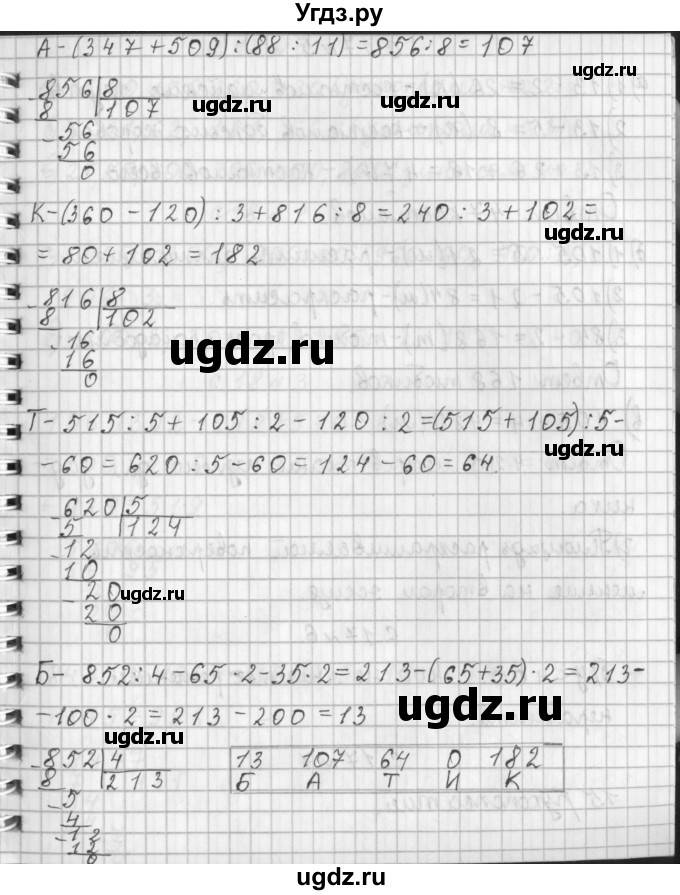 Угдз.ру
А-(347+509):(88:11)=856:8=107
-856|8
8 |107
-56
56
0
ugdz.ru
ugdz.ru
К-(360-120):3+816:8=240:3+102=
=80+102=182
ugdz.ru
ugdz.ru
-816|8
8 |102
-16
16
0
ugdz.ru
Т-515:5+105:2-120:2=(515+105):5-
-60=620:5-60=124-60=64
ugdz.ru
-620|5
5 |124
-12
10
-20
20
0
ugdz.ru
Б- 852:4-65·2-35·2=213-(65+35)·2=213-
-100·2=213-200=13
ugdz.ru
ugdz.ru
-852|4
8 |213
-5
4
-12
12
0
13 107 64 0 182
Б А Т И К
ugdz.ru
ugdz.ru
Угдз.ру